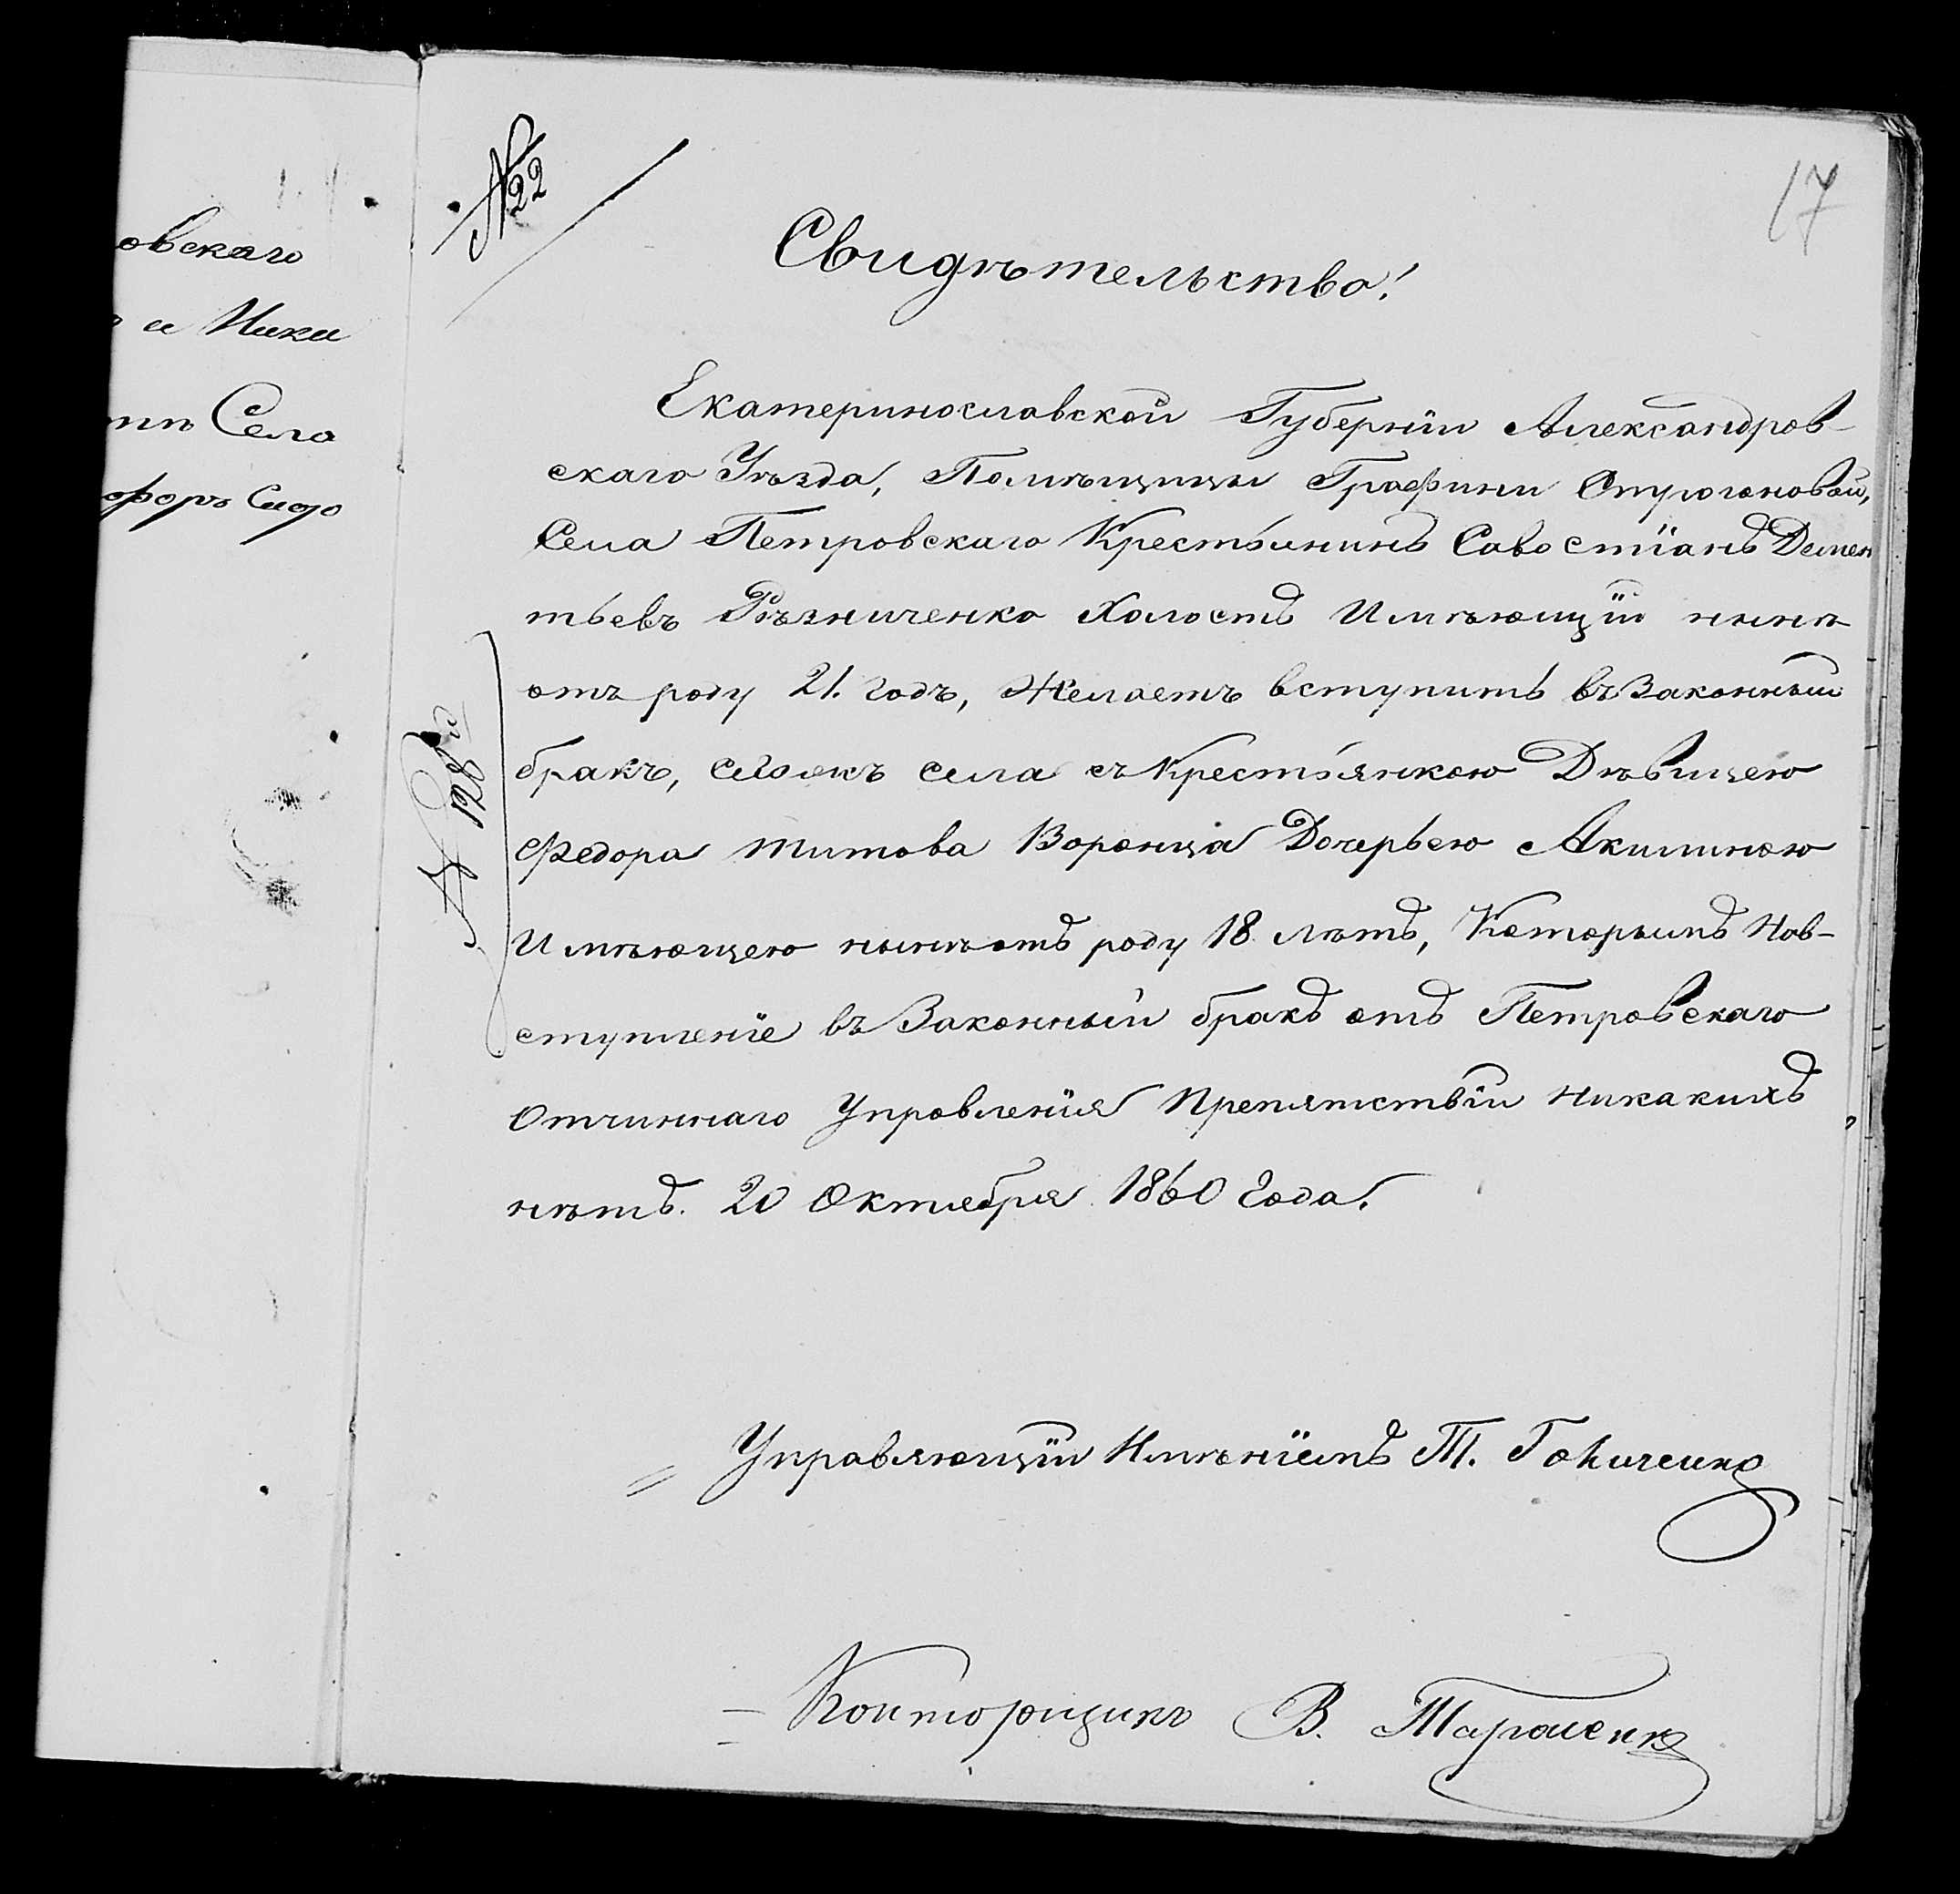 овскаго
и Ники
Села
форъ Сидо
№ 22
17
Свидѣтельство!
Екатеринославской Губерніи Александров-
скаго Уѣзда, Помѣщицы Графини Строгановой,
Села Петровскаго Крестьянинъ Савостіанъ Демен
тьевъ Рѣзниченко Холостъ Имѣющій нынѣ
отъ роду 21. годъ, Желаетъ вступить въ Законный
бракъ, сегожъ села съ Крестьянкою Дѣвицею
Федора Титова Воронца Дочерью Акилиною
Имѣющею нынѣ отъ роду 18 лѣтъ, Которымъ Нов-
ступленіе въ Законный бракъ отъ Петровскаго
Отчиннаго Управленія Препятствій Никакихъ
нѣтъ. 20 Октября 1860 Года.
128
Управляющій Имѣніемъ Т.
Конторщикъ В. Тарасенко